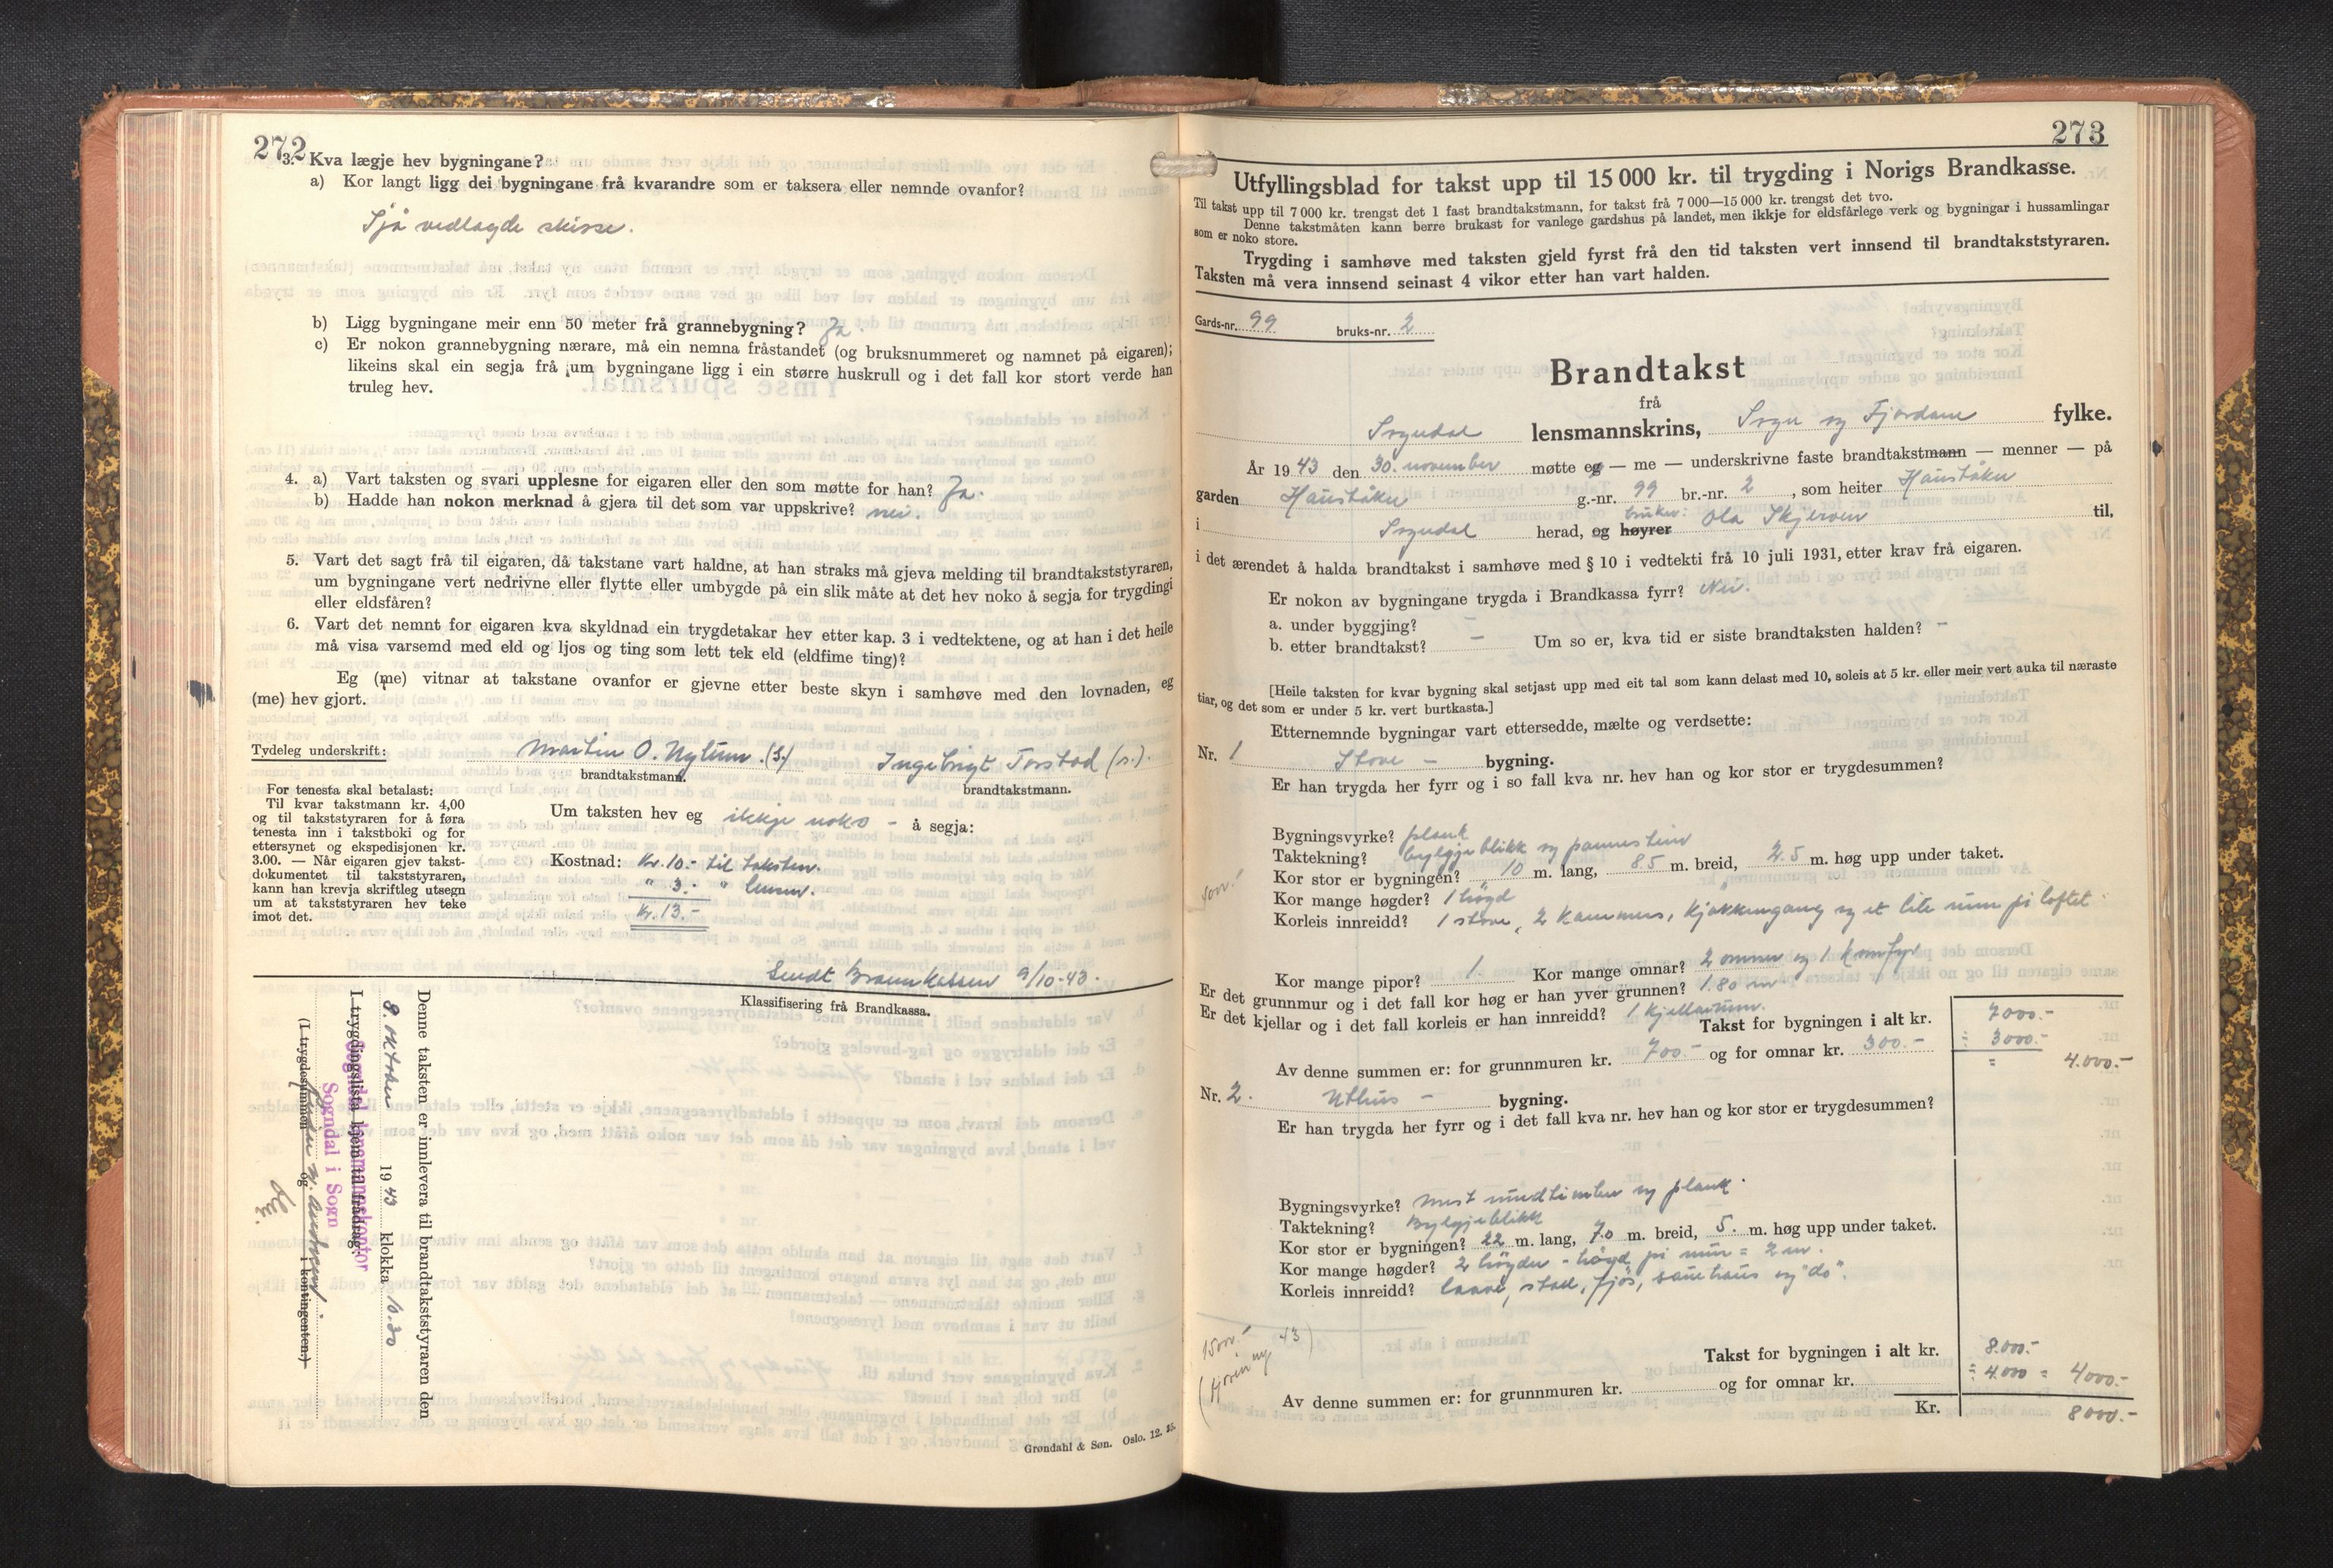 272
3. Kva lægje hev bygningane?
a) Kor langt ligg dei bygningane frå kvarandre som er taksera eller nemnde ovanfor?
Sjå vedlagde skisse.
b) Ligg bygningane meir enn 50 meter frå grannebygning? Ja.
c) Er nokon grannebygning nærare, må ein nemna fråstandet (og bruksnummeret og namnet på eigaren);
likeins skal ein segja frå um bygningane ligg i ein større huskrull og i det fall kor stort verde han
truleg hev.
4. a) Vart taksten og svari upplesne for eigaren eller den som møtte for han? Ja.
b) Hadde han nokon merknad å gjera til det som var uppskrive? nei.
5. Vart det sagt frå til eigaren, då takstane vart haldne, at han straks må gjeva melding til brandtakststyraren,
um bygningane vert nedrivne eller flytte eller umbygde på ein slik måte at det hev noko å segja for trygdingi
eller eldsfåren?
6. Vart det nemnt for eigaren kva skyldnad ein trygdetakar hev etter kap. 3 i vedtektene, og at han i det heile
må visa varsemd med eld og ljos og ting som lett tek eld (eldfime ting)?
Eg (me) vitnar at takstane ovanfor er gjevne etter beste skyn i samhøve med den lovnaden, eg
(me) hev gjort.
Tydeleg underskrift: Martin O. Nylum. (s.) Ingebrigt Torstad (s.).
brandtakstmann. brandtakstmann.
For tenesta skal betalast:
Til kvar takstmann kr. 4,00
og til takststyraren for å føra
tenesta inn i takstboki og for
ettersynet og ekspedisjonen kr.
3.00. — Når eigaren gjev takst-
dokumentet til takststyraren,
kann han krevja skriftleg utsegn
um at takststyraren hev teke
imot det.
Um taksten hev eg ikkje noko - å segja:
Kostnad: Kr. 10.- til taksten.
" 3.- " lensm.
Kr. 13.-
Sendt Brannkassen 9/10-43.
Klassifisering frå Brandkassa.
Denne taksten er innlevera til brandtakststyraren den
8. oktober 1943 klokka 10.30
I trygdingslista kjem til frådrag:
Sogndal lensmannskontor
Sogndal i Sogn
(I trygdesummen og i kontingenten.)
Grøndahl & Søn. Oslo. 12. 35.
273
Utfyllingsblad for takst upp til 15 000 kr. til trygding i Norigs Brandkasse.
Til takst upp til 7 000 kr. trengst det 1 fast brandtakstmann, for takst frå 7 000—15 000 kr. trengst det tvo.
Denne takstmåten kann berre brukast for vanlege gardshus på landet, men ikkje for eldsfårlege verk og bygningar i hussamlingar
som er noko store.
Trygding i samhøve med taksten gjeld fyrst frå den tid taksten vert innsend til brandtakststyraren.
Taksten må vera innsend seinast 4 vikor etter han vart halden.
Gards-nr. 99 bruks-nr. 2
Brandtakst
frå
Sogndal lensmannskrins, Sogn og Fjordane fylke.
År 1943 den 30. november møtte eg — me — underskrivne faste brandtakstmann — menner — på
garden Hauståker g.-nr. 99 br.-nr. 2, som heiter Hauståker
i Sogndal herad, og høyrer bruker: Ola Skjerven til,
i det ærendet å halda brandtakst i samhøve med § 10 i vedtekti frå 10 juli 1931, etter krav frå eigaren.
Er nokon av bygningane trygda i Brandkassa fyrr? Nei.
a. under byggjing? -
b. etter brandtakst? - Um so er, kva tid er siste brandtaksten halden? -
[Heile taksten for kvar bygning skal setjast upp med eit tal som kann delast med 10, soleis at 5 kr. eller meir vert auka til næraste
tiar, og det som er under 5 kr. vert burtkasta.]
Etternemnde bygningar vart ettersedde, mælte og verdsette:
Nr. 1 Stove - bygning.
Er han trygda her fyrr og i so fall kva nr. hev han og kor stor er trygdesummen?
Bygningsvyrke? plank
Taktekning? bylgjeblikk og pannestein
Kor stor er bygningen? 10 m. lang, 8.5 m. breid, 2.5 m. høg upp under taket.
Kor mange høgder? 1 høgd
Korleis innreidd? 1 stove, 2 kammers, kjøkkengang og et lite rum på loftet.
Kor mange pipor? 1 Kor mange omnar? 2 omner og 1 komfyr
Er det grunnmur og i det fall kor høg er han yver grunnen? 1.80 m.
Er det kjellar og i det fall korleis er han innreidd? 1 kjellarrum.
Takst for bygningen i alt kr. 7000.-
÷ 3000.-
Av denne summen er: for grunnmuren kr. 700.- og for omnar kr. 300.- = 4.000.-
Nr. 2. Uthus - bygning.
Er han trygda her fyrr og i det fall kva nr. hev han og kor stor er trygdesummen?
Bygningsvyrke? mest rundtimber og plank.
Taktekning? Bylgjeblikk
Kor stor er bygningen? 22 m. lang, 7.0 m. breid, 5. m. høg upp under taket.
Kor mange høgder? 2 høgder - høgd på mur = 2 m.
Korleis innreidd? laave, stall, fjøs, sauehaus og "do".
Takst for bygningen i alt kr. 8.000.-
÷ 4.000 = 4000.-
Av denne summen er: for grunnmuren kr. og for omnar kr.
Kr. 8000.-